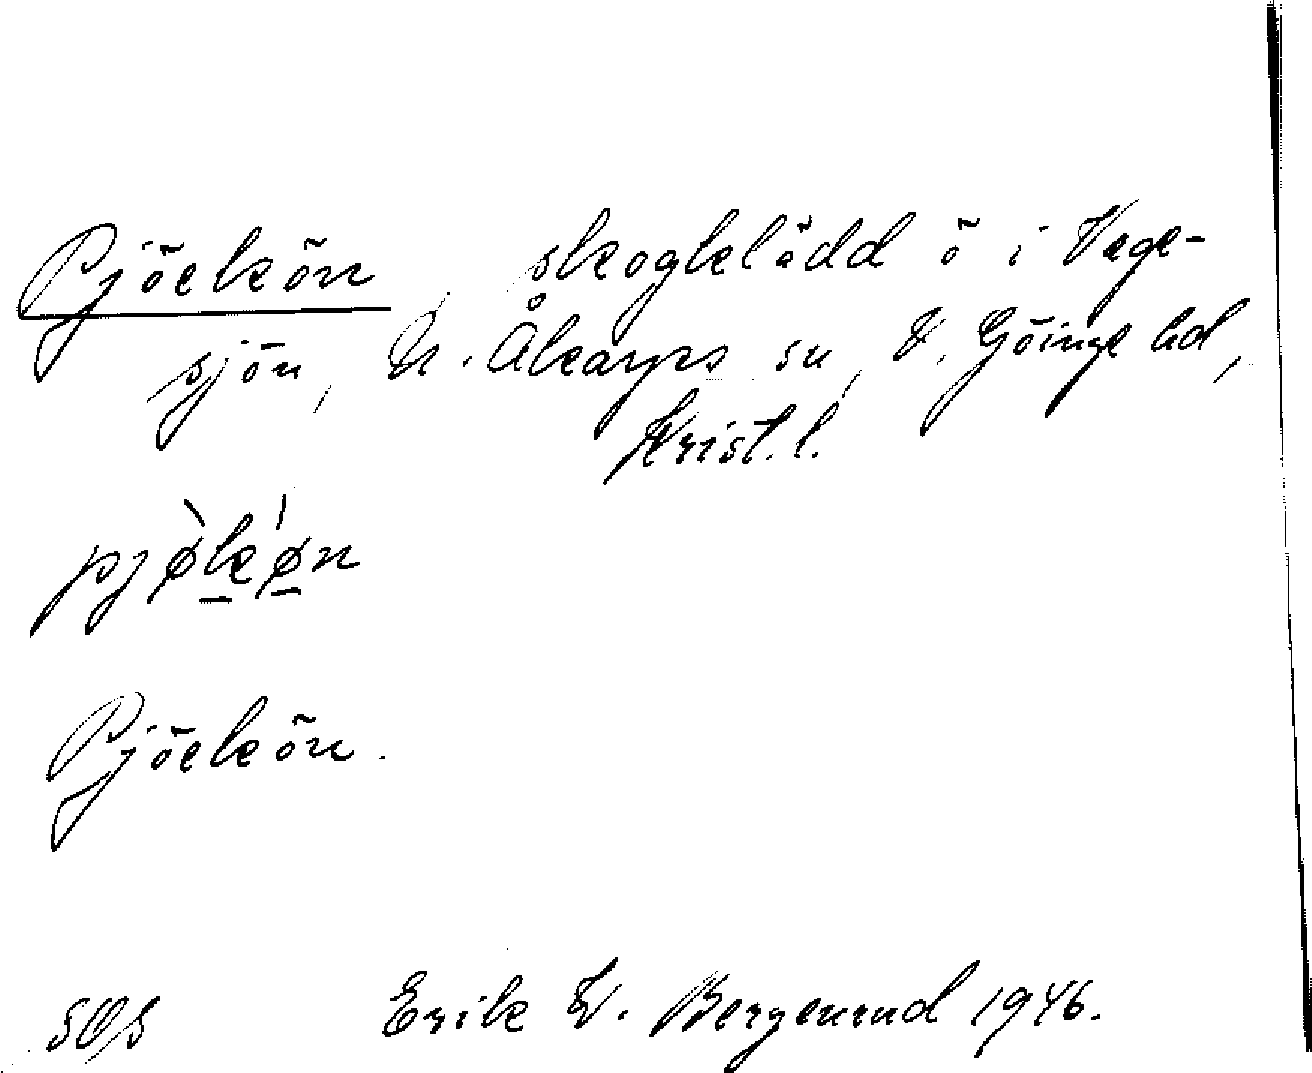 Pjäckön, skogklädd ö i Vege-
sjön, N. Åkarps sn, V. Göinge hd,
Krist. l.
pjø̀kǿn
Pjöckön.
SOS Erik W. Bergenrud 1946.